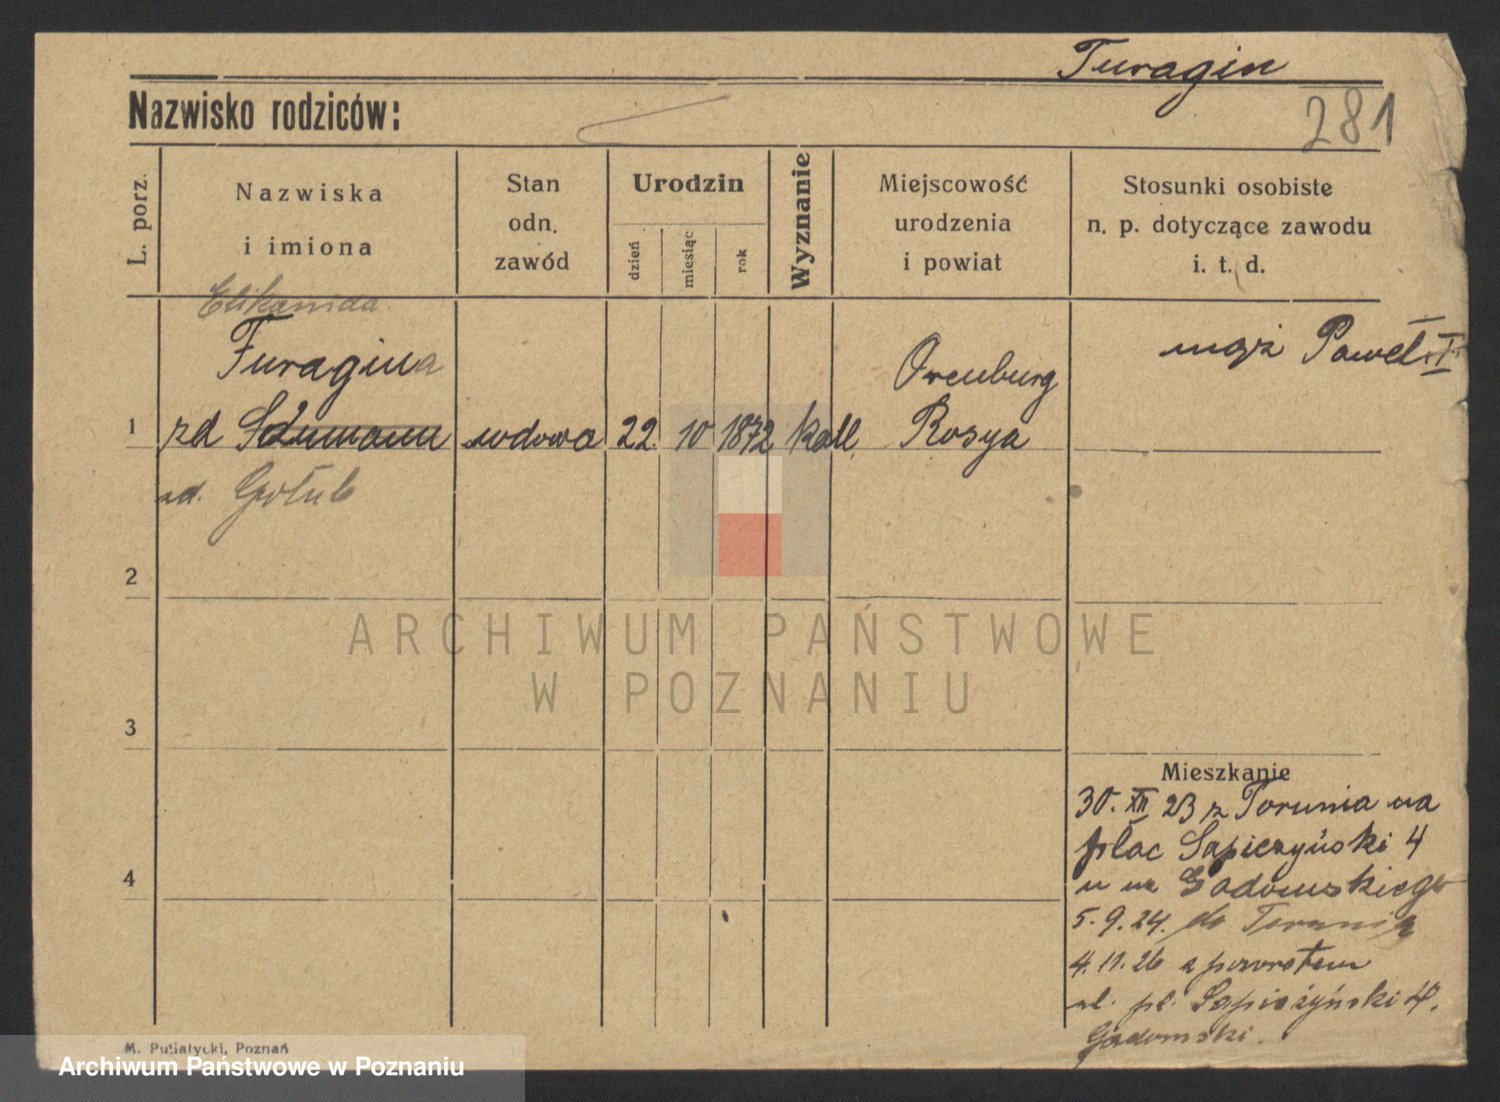 Turagin
Nazwisko rodziców:
281
L. porz.
Nazwiska
i imiona
Stan
odn.
zawód
Urodzin
dzień
miesiąc
rok
Wyznanie
Miejscowość
urodzenia
i powiat
Stosunki osobiste
n. p. dotyczące zawodu
i. t. d.
Turagina
mąż Paweł
Orenburg
1
zd Szumann wdowa 22 10 1872 Rosya
Gołub
2
ARCHIWUM PAŃSTWOWE
W POZNANIU
3
Mieszkanie
30. XII 23 z Torunia na
plac Sapieżyński 4
Gadomskiego
4
5.9.24. do Torunia
4.11.26 z powrotem
ul. pl. Sapieżyński 4.
Gadomski.
M. Putiatycki, Poznań
Archiwum Państwowe w Poznaniu